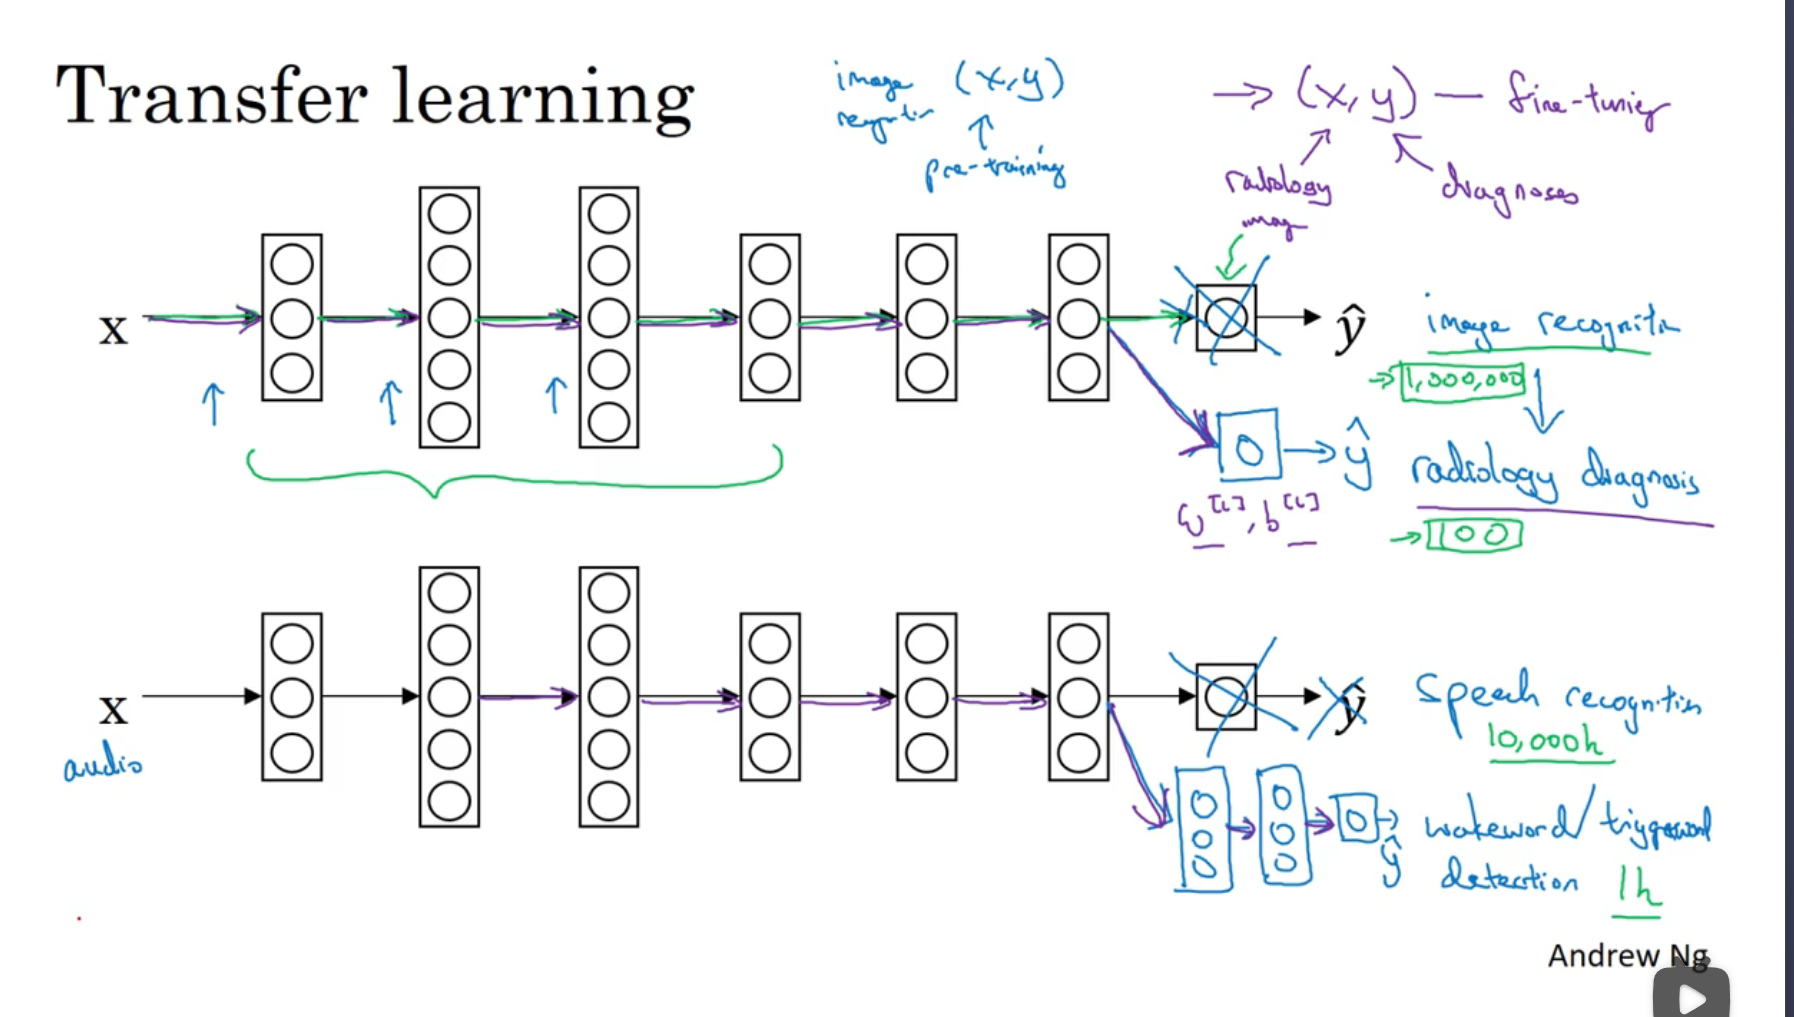 Transfer learning
image (x,y)
pre-training
→ (x, y) — fine-tuning
radiology
diagnoses
x
ŷ
image
1,000,000
ŷ
radiology diagnosis
w[L], b[L]
100
x
audio
ŷ
speech recognition
10,000h
wakeword/triggerword
ŷ
detection 1h
Andrew Ng